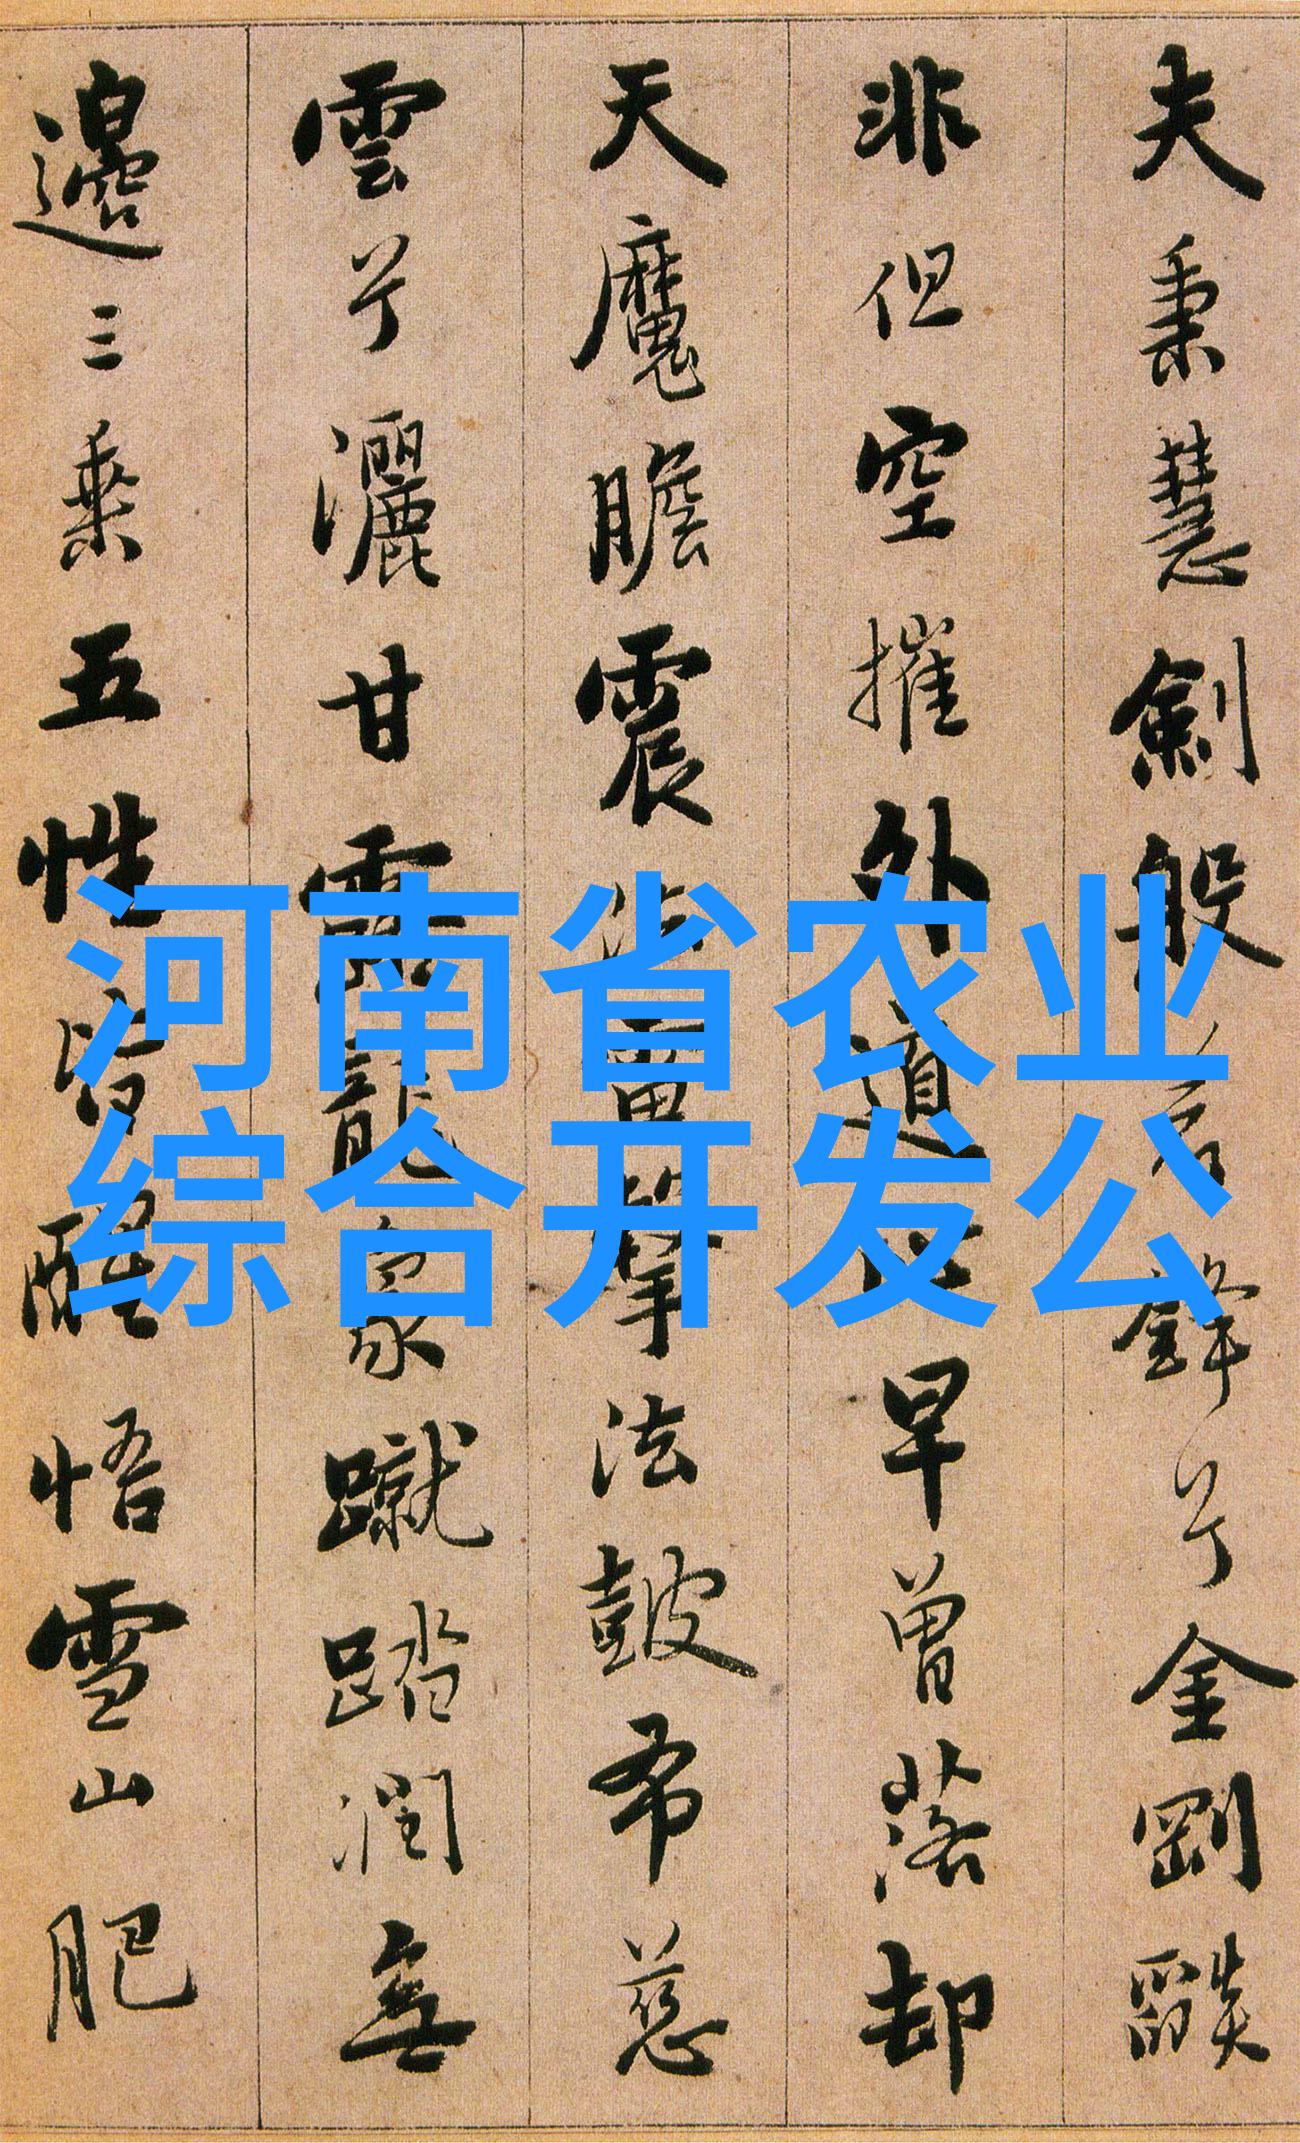 夫秉慧劍般若鋒兮金剛燄
非但空摧外道心早曾落却
天魔膽震法雷擊法皷布慈
雲兮灑甘露龍象蹴踏潤無
邊三乘五性皆醒悟雪山肥
河南省农业
综合开发公